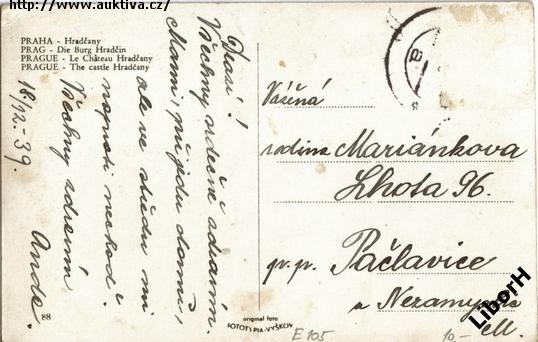 http://www.auktiva.cz/
PRAHA - Hradčany
PRAG - Die Burg Hradčin
PRAGUE - Le Château Hradčany
PRAGUE - The castle Hradčany
18/12.-39.
Drazí!
Všechny srdečně zdravím.
Mami, přijedu domů,
ale ve středu mi
naproti nechoď.
Všechny zdravím
Anda.
88
Vážená
rodina Mariánkova
Lhota 96.
p.p. Pačlavice
u
M.
original foto
FOTOTYPIA-VYŠKOV
E 105
10,-
LiborH